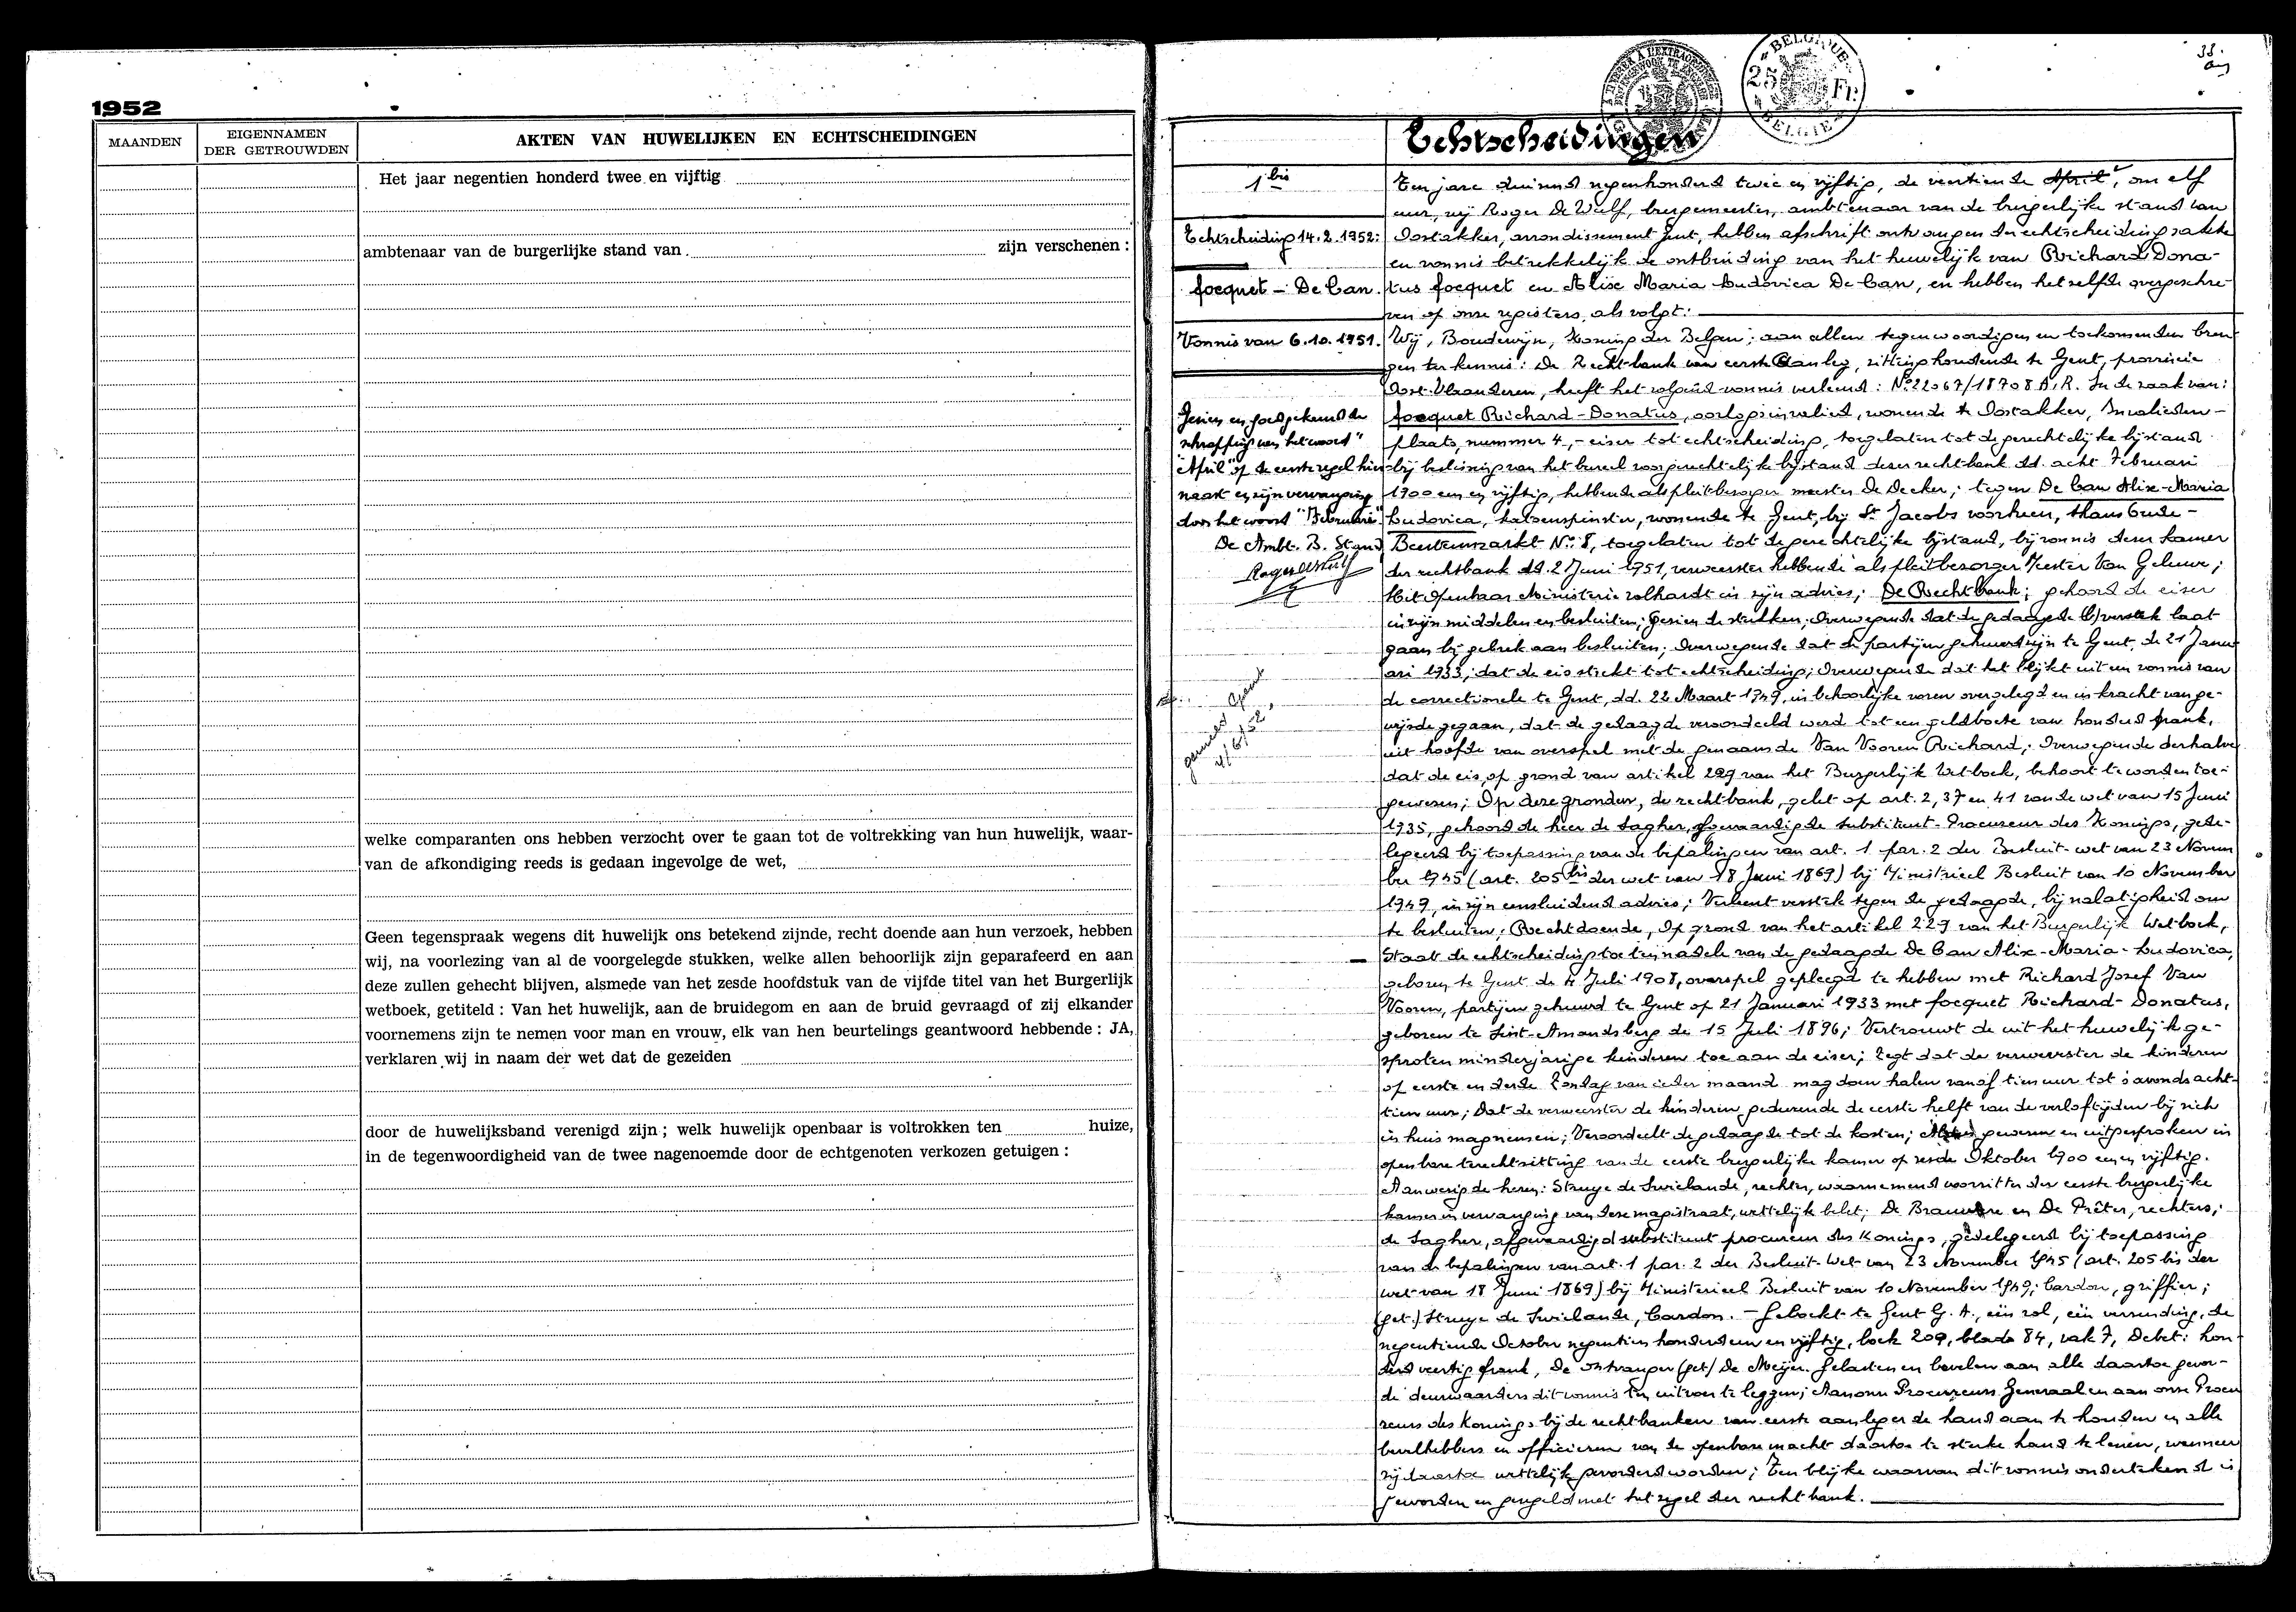 1952
MAANDEN
EIGENNAMEN
DER GETROUWDEN
AKTEN VAN HUWELIJKEN EN ECHTSCHEIDINGEN
Het jaar negentien honderd twee en vijftig
ambtenaar van de burgerlijke stand van zijn verschenen :
welke comparanten ons hebben verzocht over te gaan tot de voltrekking van hun huwelijk, waar-
van de afkondiging reeds is gedaan ingevolge de wet,
Geen tegenspraak wegens dit huwelijk ons betekend zijnde, recht doende aan hun verzoek, hebben
wij, na voorlezing van al de voorgelegde stukken, welke allen behoorlijk zijn geparafeerd en aan
deze zullen gehecht blijven, alsmede van het zesde hoofdstuk van de vijfde titel van het Burgerlijk
wetboek, getiteld : Van het huwelijk, aan de bruidegom en aan de bruid gevraagd of zij elkander
voornemens zijn te nemen voor man en vrouw, elk van hen beurtelings geantwoord hebbende : JA,
verklaren wij in naam der wet dat de gezeiden
door de huwelijksband verenigd zijn ; welk huwelijk openbaar is voltrokken ten huize,
in de tegenwoordigheid van de twee nagenoemde door de echtgenoten verkozen getuigen :
BELGIQUE
25 Fr.
BELGIE
38
Echtscheidingen
1 bis
Echtscheiding 14.2.1952:
focquet - De Can.
Vonnis van 6.10.1951.
Gezien en goedgekeurd de
schrapping van het woord
"April" op de eerste regel hier-
naast en zijn vervanging
door het woord "Februari".
De Ambt. B. Stand
Roger De Wulf
gemeld Gent
4/6/52
Ten jare duizend negenhonderd twee en vijftig, de veertiende April, om elf
uur, wij Roger De Wulf, burgemeester, ambtenaar van de burgerlijke stand van
Oostakker, arrondissement Gent, hebben afschrift ontvangen der echtscheidingsakte
en vonnis betrekkelijk de ontbinding van het huwelijk van Richard Dona-
tus focquet en Alixe Maria Ludovica De Can, en hebben hetzelfde overgeschre-
ven op onze registers, als volgt:
Wij, Boudewijn, Koning der Belgen; aan allen tegenwoordigen en toekomenden bren-
gen ter kennis: De Rechtbank van eerste Aanleg, zittinghoudende te Gent, provincie
Oost-Vlaanderen, heeft het volgend vonnis verleend: No 22067/18708 A.R. In de zaak van:
focquet Richard-Donatus, oorlogsinvalied, wonende te Oostakker, Invalieden-
plaats, nummer 4, - eiser tot echtscheiding, toegelaten tot de gerechtelijke bijstand
bij beslissing van het bureel voor gerechtelijke bijstand dezer rechtbank dd. acht Februari
1900 een en vijftig, hebbende als pleitbezorger meester De Decker; tegen De Can Alix-Maria
Ludovica, katoenspinster, wonende te Gent, bij St Jacobs voorheen, thans Oude-
Beestenmarkt No 8, toegelaten tot de gerechtelijke bijstand, bij vonnis dezer kamer
der rechtbank dd. 2 Juni 1951, verweerster hebbende als pleitbezorger Meester Van Geluwe;
Het Openbaar Ministerie volhardt in zijn advies; De Rechtbank; gehoord de eiser
in zijn middelen en besluiten; Gezien de stukken; Overwegende dat de gedaagde bij verstek laat
gaan bij gebrek aan besluiten; Overwegende dat de partijen gehuwd zijn te Gent, de 21 Janu-
ari 1933; dat de eis strekt tot echtscheiding; Overwegende dat het blijkt uit een vonnis van
de correctionele te Gent, dd. 22 Maart 1949, in behoorlijke vorm overgelegd en in kracht van ge-
wijsde gegaan, dat de gedaagde veroordeeld werd tot een geldboete van honderd frank,
uit hoofde van overspel met de genaamde Van Vooren Richard; Overwegende derhalve
dat de eis, op grond van artikel 229 van het Burgerlijk Wetboek, behoort te worden toe-
gewezen; Op deze gronden, de rechtbank, gelet op art. 2, 37 en 41 van de wet van 15 Juni
1935, gehoord de heer de Sagher, afgevaardigde substituut-Procureur des Konings, gede-
legeerd bij toepassing van de bepalingen van art. 1 par. 2 der Besluit-wet van 23 Novem
ber 1945 (art. 205 bis der wet van 18 Juni 1869) bij Ministrieel Besluit van 10 November
1949, in zijn eensluidend advies; Verleent verstek tegen de gedaagde, bij nalatigheid om
te besluiten; Recht doende, Op grond van het artikel 229 van het Burgerlijk Wetboek,
Staat de echtscheiding toe ten nadele van de gedaagde De Can Alix-Maria-Ludovica,
geboren te Gent de 4 Juli 1908, overspel gepleegd te hebben met Richard Jozef Van
Vooren, partijen gehuwd te Gent op 21 Januari 1933 met focquet Richard-Donatus,
geboren te Sint-Amandsberg de 15 Juli 1896; Vertrouwt de uit het huwelijk ge-
sproten minderjarige kinderen toe aan de eiser; Zegt dat de verweerster de kinderen
op eerste en derde Zondag van ieder maand mag doen halen vanaf tien uur tot 's avonds acht-
tien uur; Dat de verweerster de kinderen gedurende de eerste helft van de verloftijden bij zich
in huis mag nemen; Veroordeelt de gedaagde tot de kosten; gewezen en uitgesproken in
openbare terechtzitting van de eerste burgerlijke kamer op zesde Oktober 1900 een en vijftig.
Aanwezig de heren: Struye de Swielande, rechter, waarnemend voorzitter der eerste burgerlijke
kamer in vervanging van deze magistraat, wettelijk belet; De Brauwere en De Prêter, rechters;
de Sagher, afgevaardigd substituut procureur des Konings, gedelegeerd bij toepassing
van de bepalingen van art. 1 par. 2 der Besluit-Wet van 23 November 1945 (art. 205 bis der
wet van 18 Juni 1869) bij Ministerieel Besluit van 10 November 1949; Cardon, griffier;
(get.) Struye de Swielande, Cardon. - Geboekt te Gent G. A., een rol, een verzending, de
negentiende October negentien honderd een en vijftig, boek 209, blad 84, vak 7, Debet: hon-
derd veertig frank, De ontvanger (get) De Meijer. Gelasten en bevelen aan alle daartoe gevor-
de deurwaarders dit vonnis ten uitvoer te leggen; Aan onze Procureurs Generaal en aan onze Procu
reurs des Konings bij de rechtbanken van eerste aanleg er de hand aan te houden en alle
bevelhebbers en officieren van de openbare macht daartoe de sterke hand te lenen, wanneer
zij daartoe wettelijk gevorderd worden; Ten blijke waarvan dit vonnis ondertekend is
geworden en gezegeld met het zegel der rechtbank.